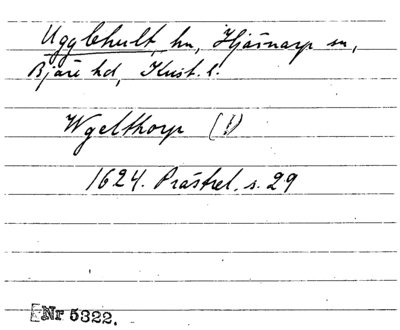 Ugglehult, hn, Hjärnarp sn,
Bjäre hd, Krist. l.
Wgelthorp (!)
1624. Prästrel. s. 29
Nr 5322.